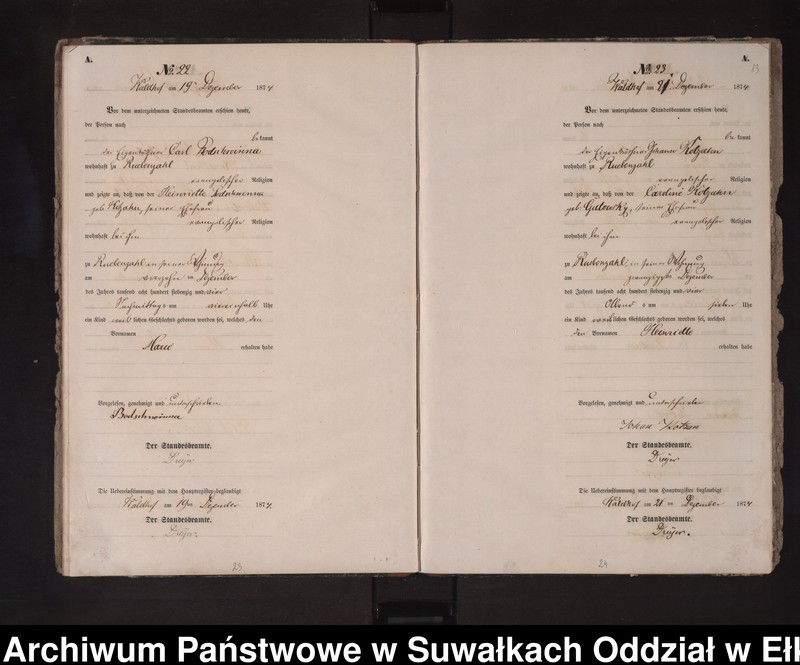 A.
No. 22
Waldhof am 19 Dezember 1874
Vor dem unterzeichneten Standesbeamten erschien heute,
der Person nach
bekannt
der Eigenkäthner Carl
wohnhaft zu Rudenzahl
evangelischer Religion
und zeigte an, daß von der Henriette
geb. seiner Ehefrau
evangelischer Religion
wohnhaft bei ihm
zu Rudenzahl in seiner Wohnung
am Dezember
des Jahres tausend acht hundert siebenzig und vier
Nachmittags um Uhr
ein Kind weiblichen Geschlechts geboren worden sei, welches den
Vornamen
Marie
erhalten habe
Vorgelesen, genehmigt und unterschrieben
Der Standesbeamte.
Dreyer
Die Uebereinstimmung mit dem Hauptregister beglaubigt
Waldhof am 19 Dezember 1874.
Der Standesbeamte.
Dreyer.
23
A.
No. 23
Waldhof am 21 Dezember 1874
Vor dem unterzeichneten Standesbeamten erschien heute,
der Person nach
bekannt
der Johann Kotzahn
wohnhaft zu Rudenzahl
evangelischer Religion
und zeigte an, daß von der Kotzahn
geb. seiner Ehefrau
evangelischer Religion
wohnhaft bei ihm
zu Rudenzahl in seiner Wohnung
am zwanzigsten Dezember
des Jahres tausend acht hundert siebenzig und vier
Abend s um sieben Uhr
ein Kind weiblichen Geschlechts geboren worden sei, welches
den Vornamen Henriette
erhalten habe
Vorgelesen, genehmigt und unterschrieben
Der Standesbeamte.
Dreyer
Die Uebereinstimmung mit dem Hauptregister beglaubigt
Waldhof am 21 Dezember 1874
Der Standesbeamte.
Dreyer.
24
Archiwum Państwowe w Suwałkach Oddział w Eł